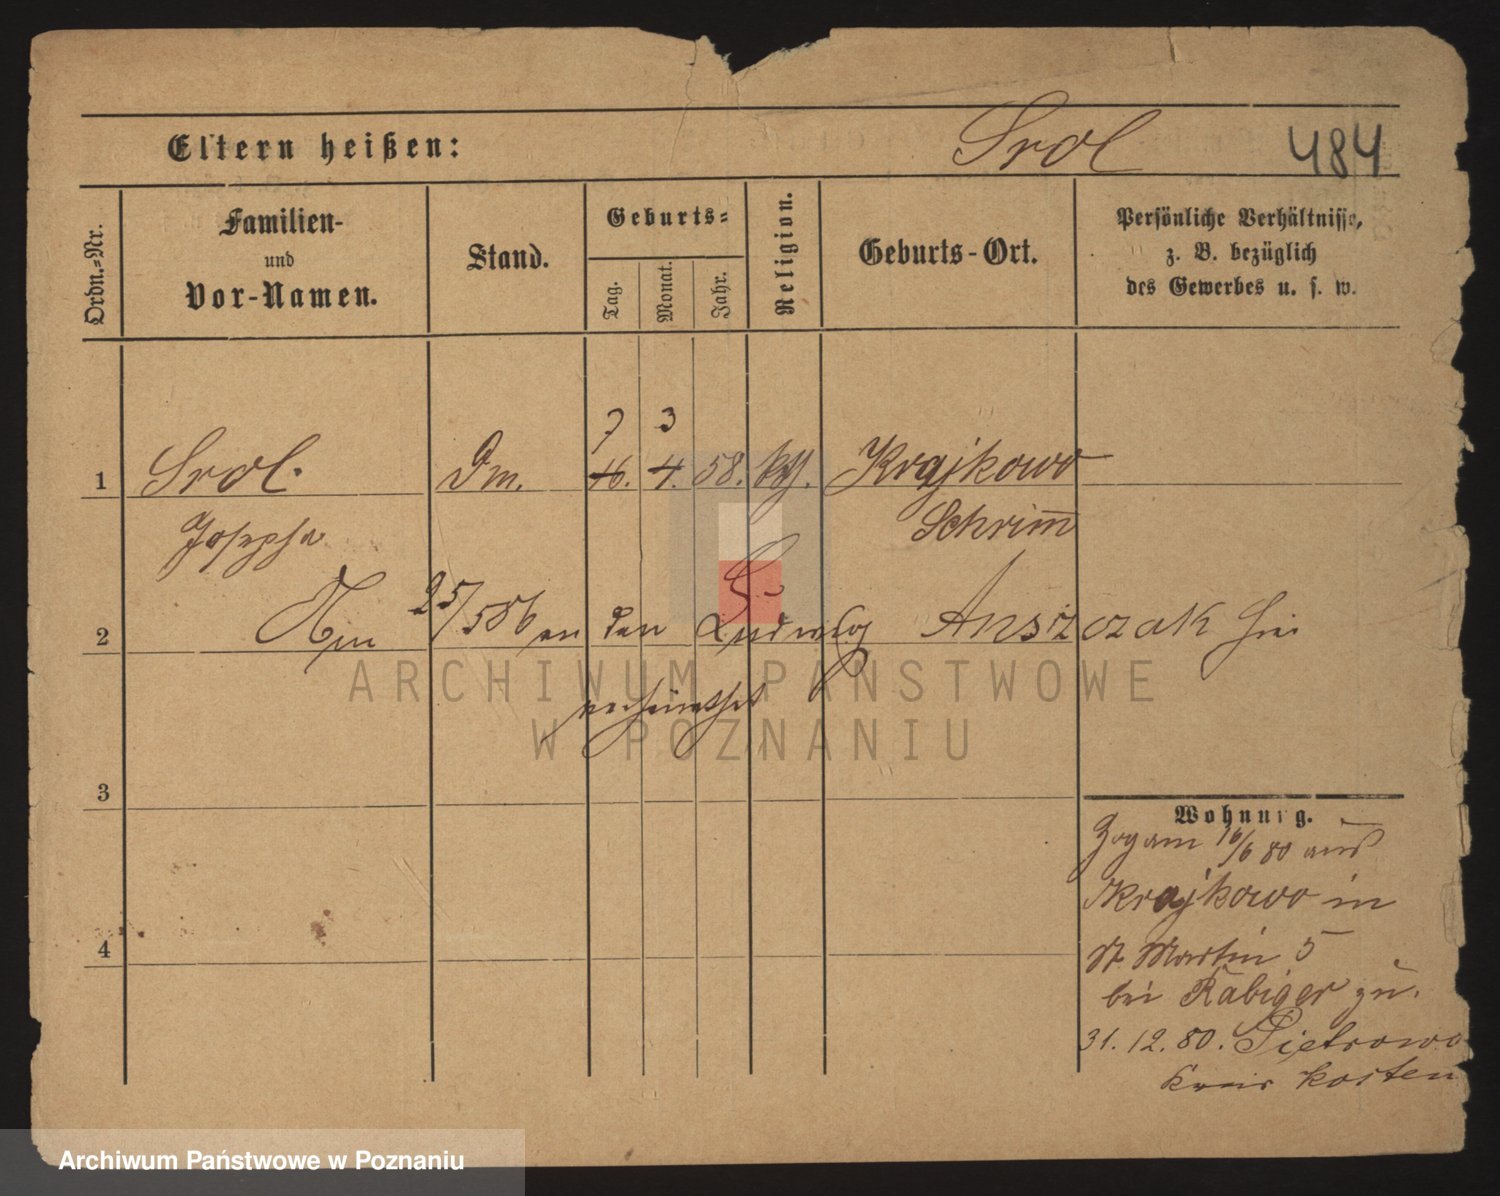 Eltern heißen: Srol 484
Ordn.-Nr.
Familien-
und
Vor-Namen.
Stand.
Geburts-
Tag.
Monat.
Jahr.
Religion.
Geburts-Ort.
Persönliche Verhältnisse,
z. B. bezüglich
des Gewerbes u. s. w.
7 3
1 Srol. Dm. 16. 4. 58. kth. Krajkowo
Josepha Schrimm
2 25/5 86 an den Ludwig Anszczak hier
verheirathet
3
Wohnung.
Zog am 16/6 80 aus
Krajkowo in
St Martin 5
bei Rabiger zu.
4
31. 12. 80. Pietrowo
Kreis Kosten
ARCHIWUM PAŃSTWOWE
W POZNANIU
Archiwum Państwowe w Poznaniu